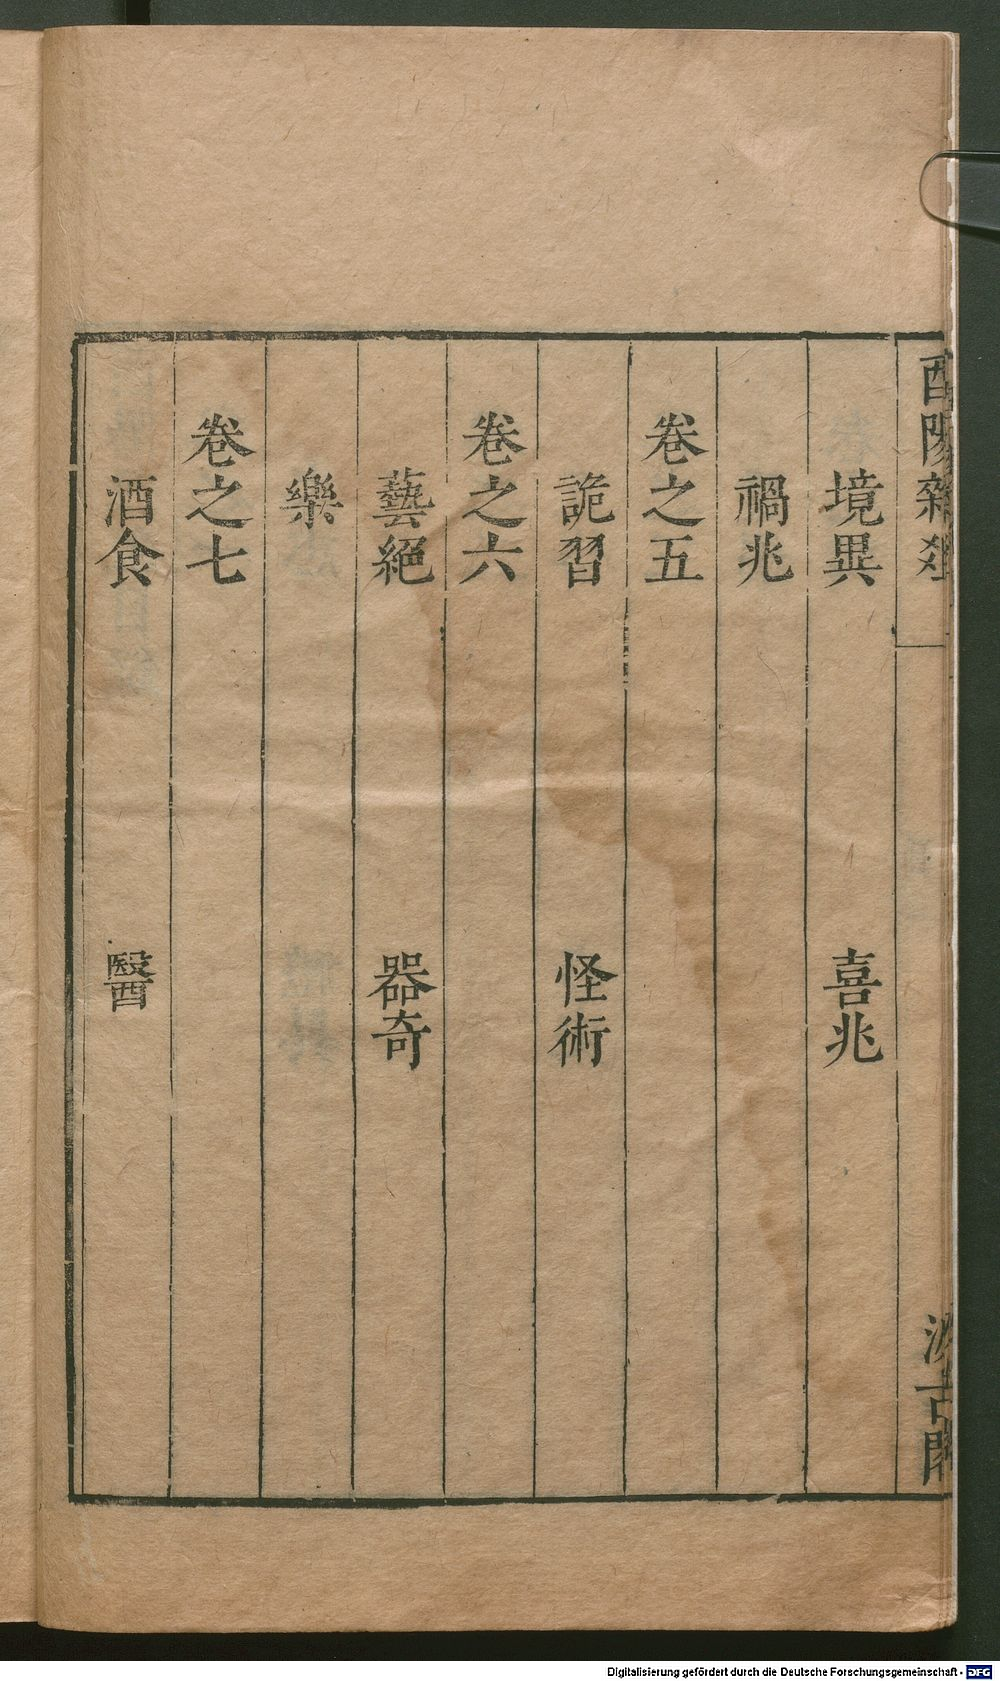 酉陽雜俎
汲古閣
境異　喜兆
禍兆
卷之五
詭習　怪術
卷之六
藝絕　器奇
樂
卷之七
酒食　醫
Digitalisierung gefördert durch die Deutsche Forschungsgemeinschaft - DFG